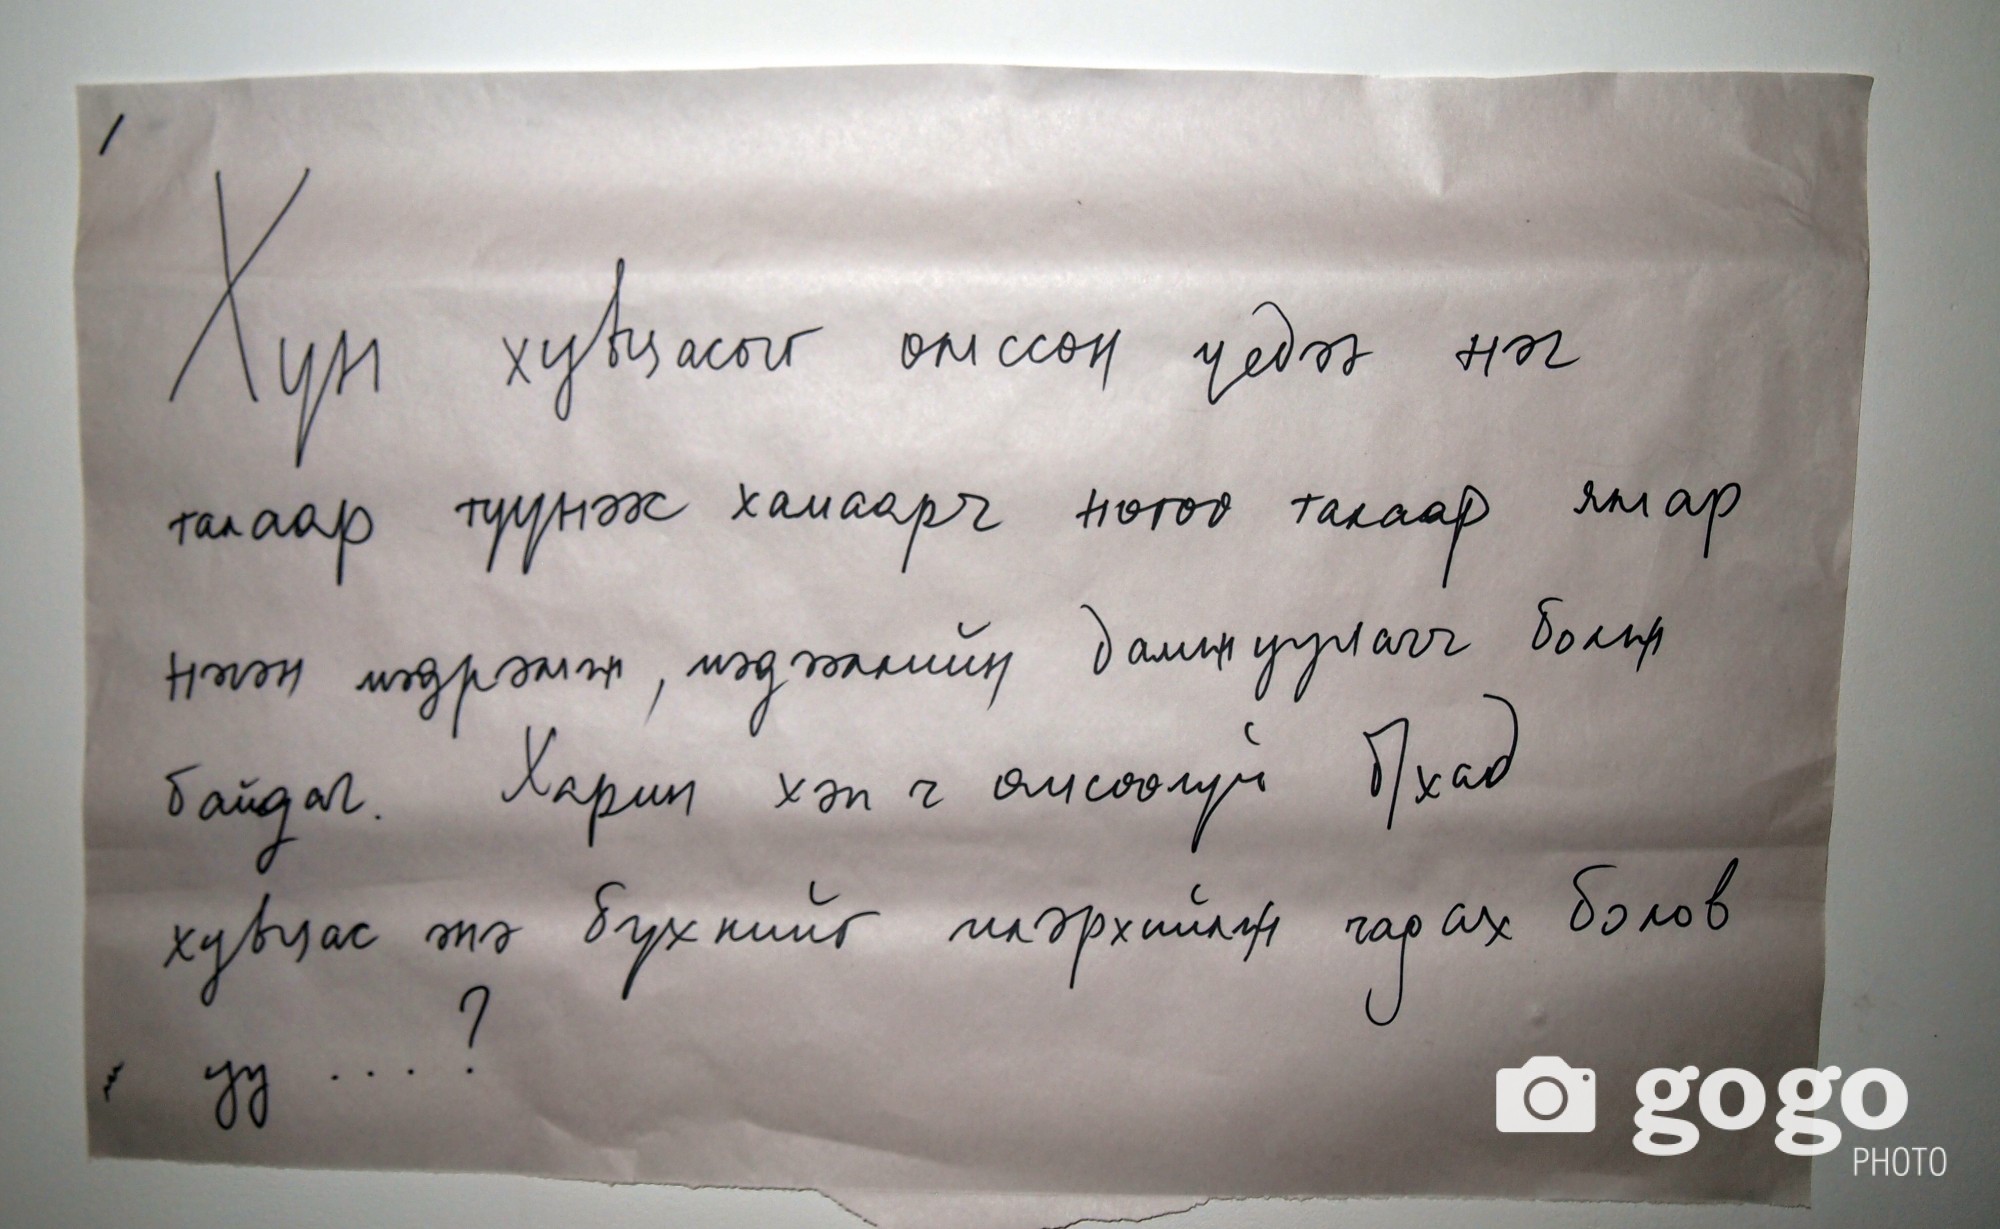 Хүн хувцсаст өмссөн үедээ нэг
талаар түүнээс хамаарч нөгөө талаар ямар
нэгэн мэдрэмж, мэдээллийн дамжуулагч болж
байдаг. Харин хэн ч өмсөөгүй байхад
хувцас энэ бүхнийг илэрхийлж чадах болов
уу ....?
gogo
PHOTO